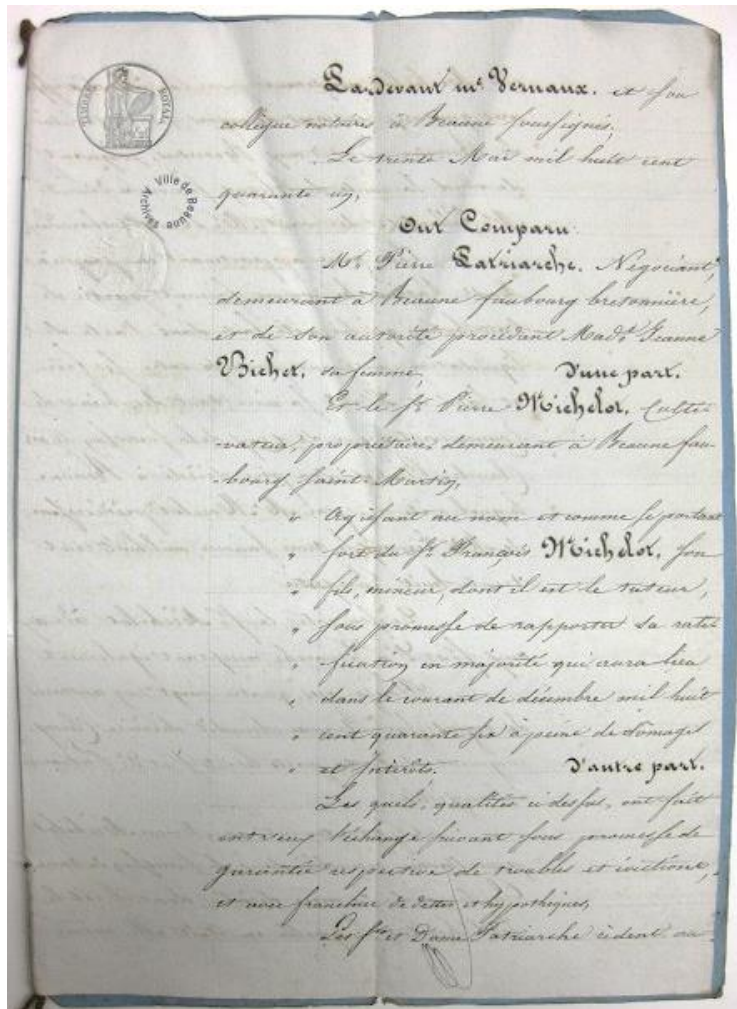 TIMBRE ROYAL
Ville de Beaune
Archives
Pardevant Me. Vernaux. et son
collègue notaires à Beaune soussignés,
Le trente Mai mil huit cent
quarante un,
Ont Comparu.
Mr. Pierre Patriarche. Négociant,
demeurant à Beaune faubourg bretonnière,
et de son autorité procédant Made. Jeanne
Bichet, sa femme, D'une part.
Et le Sr. Pierre Michelot, Culti-
-vateur, propriétaire, demeurant à Beaune fau-
bourg Saint Martin,
" Agissant au nom et comme se portant
" fort du Sr. François Michelot, son
" fils, mineur, dont il est le tuteur,
" sous promesse de rapporter sa rati-
" fication en majorité qui aura lieu
" dans le courant de décembre mil huit
" cent quarante six à peine de domages
" et intérêts. D'autre part.
Les quels, qualités ci dessus, ont fait
entr'eux l'échange suivant sous promesse de
garantie respective de troubles et évictions,
et avec franchise de dettes et hypothèques,
Les Sr. et Dame Patriarche cèdent au